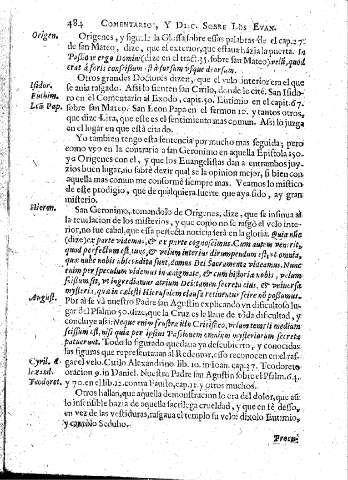 484 COMENTARIO, Y DISC. SOBRE LOS EVAN.
Origen.
Origenes, y sigue le la Glossa sobre essas palabras de el cap. 27.
de san Mateo, dize, que el exterior, que estaua hàzia la puerta. In
Passione ergo Domini (dize en el tract. 35. sobre san Mateo) velū, quod
erat à foris conscissum est à sursum vsque deorsum.
Otros grandes Doctores dizen, que el velo interior era el que
Isidor.
se auia rasgado. Assi lo sienten san Cirilo, donde le cité. San Isido-
Euthim.
ro en el Comentario al Exodo, capit. 50. Eutimio en el capit. 67.
Leō Pap.
sobre san Mateo. San Leon Papa en el sermon 10. y tantos otros,
que dize Lira, que este es el sentimiento mas comun. Assi lo juzga
en el lugar en que està citado.
Yo tambien tengo esta sentencia por mucho mas seguida; pero
como veo en la contrario a san Geronimo en aquella Epistola 150.
ya Origenes con el, y que los Euangelistas dan a entrambos juy-
zios buen lugar, no sabrè dezir qual se la opinion mejor, si bien con
aquella mas comun me conformè siempre mas. Veamos lo mistico
de este prodigio, que de qualquiera suerte que aya sido, ay gran
misterio.
Hieron.
San Geronimo, tomandolo de Origenes, dize, que se insinua al
la reuelacion de los misterios, y que como no se rasgò el velo inte-
rior, no fue cabal, que essa perfecta noticia serà en la gloria. Quia nūc
(dize) ex parte videmus, & ex parte cognoscimus. Cum autem venerit,
quod perfectum est, tunc, & velum interius dirumpendum est, vt omnia,
quæ nunc nobis abscondita sunt, domus Dei Sacramenta videamus. Nunc
enim per speculum videmus in ænigmate, & cum historia nobis, velum
scissum sit, vt ingrediatur atrium Dei: tamen secreta eius, & vniuersa
mysteria, quæ in cælesti Hierusalem clausa retinetur scire nō possumus.
August.
Por ai se và nuestro Padre san Agustin explicando vn dificultoso lu-
gar del Psalmo 50. dize, que la Cruz es le llaue de toda dificultad, y
concluye assi: Neque enim frustra illo Crucifixo, velum templi medium
scissum est, nisi quia per ipsius Passionem omnium mysteriorum secreta
patuerunt. Todo lo figurado quedaua ya descubierto, y conocidas
las figuras que representauan al Redentor, esso reconocen en el ras-
Cyril. A-
gar el velo. Cirilo Alexandrino lib. 10. in Ioan. cap. 27. Teodoreto
lexand.
oracion 9. in Daniel. Nuestro Padre san Agustin sobre el Psalm. 64.
Teodoret.
y 70. en el lib. 12. contra Fausto, cap. 11. y otros muchos.
Otros hallan, que aquella demonstracion lo era del dolor, que assi
lo insensible hazia de aquella sacrilega crueldad, y que en fè desso,
en vez de las vestiduras, rasgaua el templo su velo: dixolo Eutimio,
y cantòlo Sedulio.
Prote-